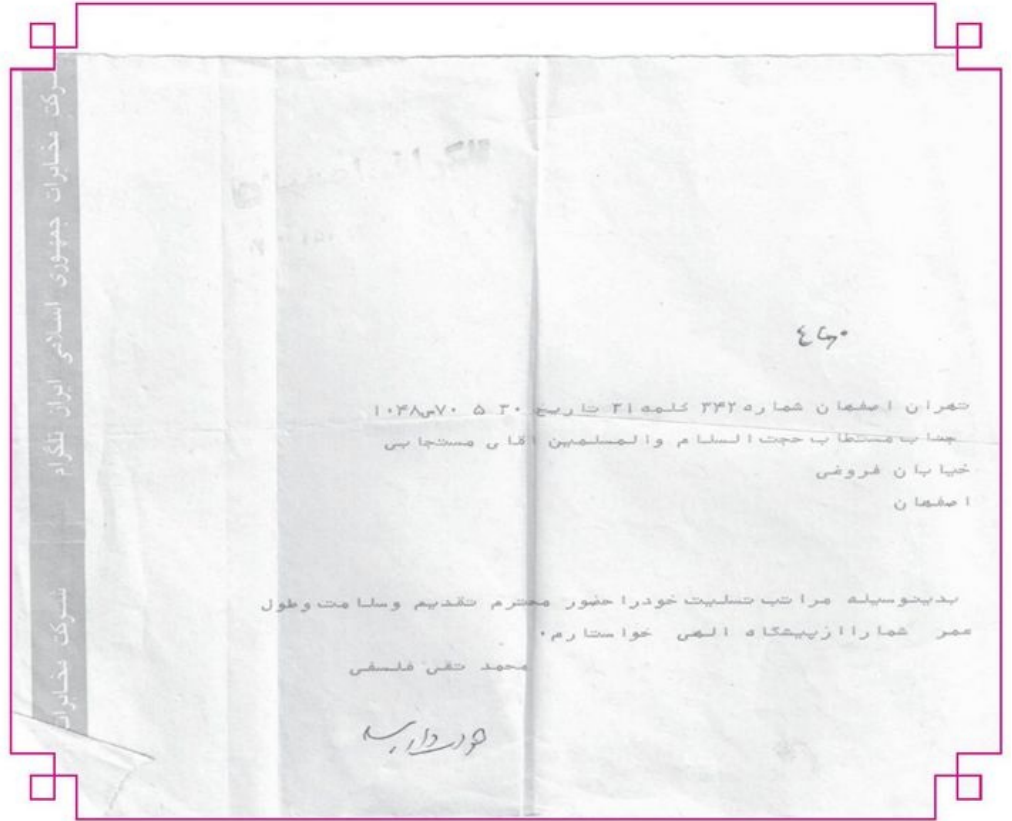 شرکت مخابرات جمهوری اسلامی ایران تلگرام
شرکت مخابرات
تهران اصفهان شماره ۳۴۲ کلمه ۲۱ تاریخ ۳۰ ۵ ۷۰ص۱۰۴۸
جناب مستطاب حجت السلام والمسلمین آقای مستجابی
خیابان فروغی
اصفهان
بدینوسیله مراتب تسلیت خودرا حضور محترم تقدیم وسلامت وطول
عمر شماراازپیشگاه الهی خواستارم.
محمد تقی فلسفی